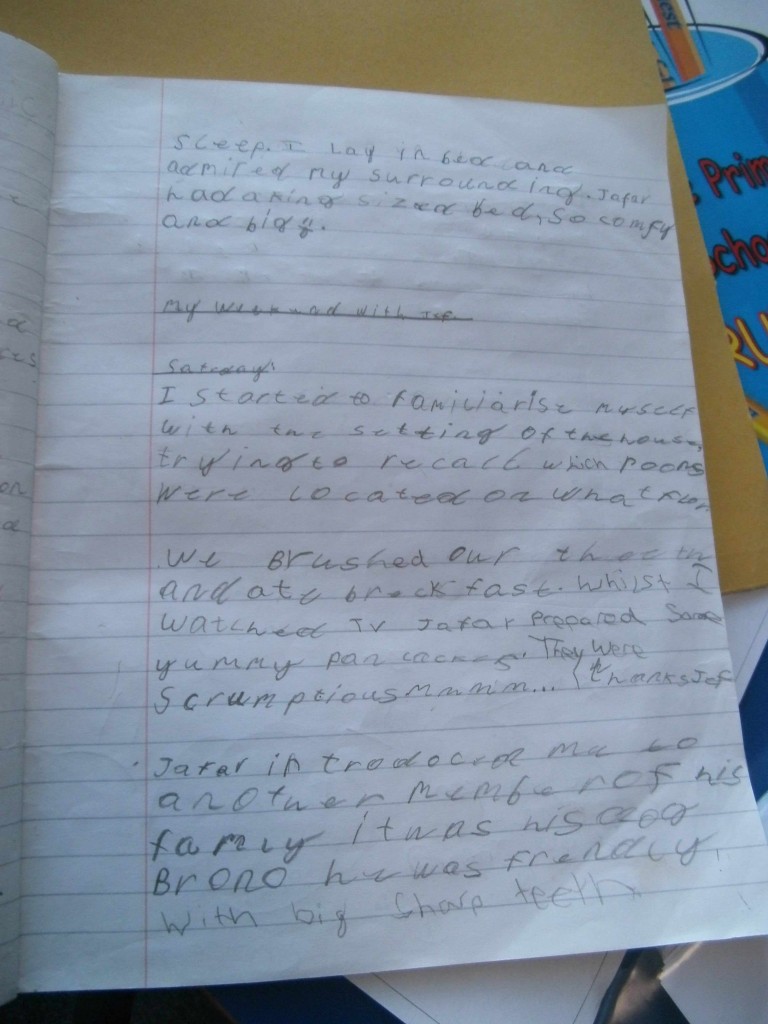 sleep. I lay in bed and
admired my surrounding. Jafar
had a king sized bed, so comfy
and big.
My weekend with Jaf
Saterday
I started to familiarise myself
with the setting of the house,
trying to recall which rooms
were located on what floor
We Brushed our theeth
and ate breckfast. Whilst I
watched TV Jafar prepared some
yummy pancackes. They were
scrumptious mmmm... thanks Jaf
Jafar introdoced me to
another member of his
famly it was his dog
Brono he was frendly,
with big sharp teeth
est
Prim
RU